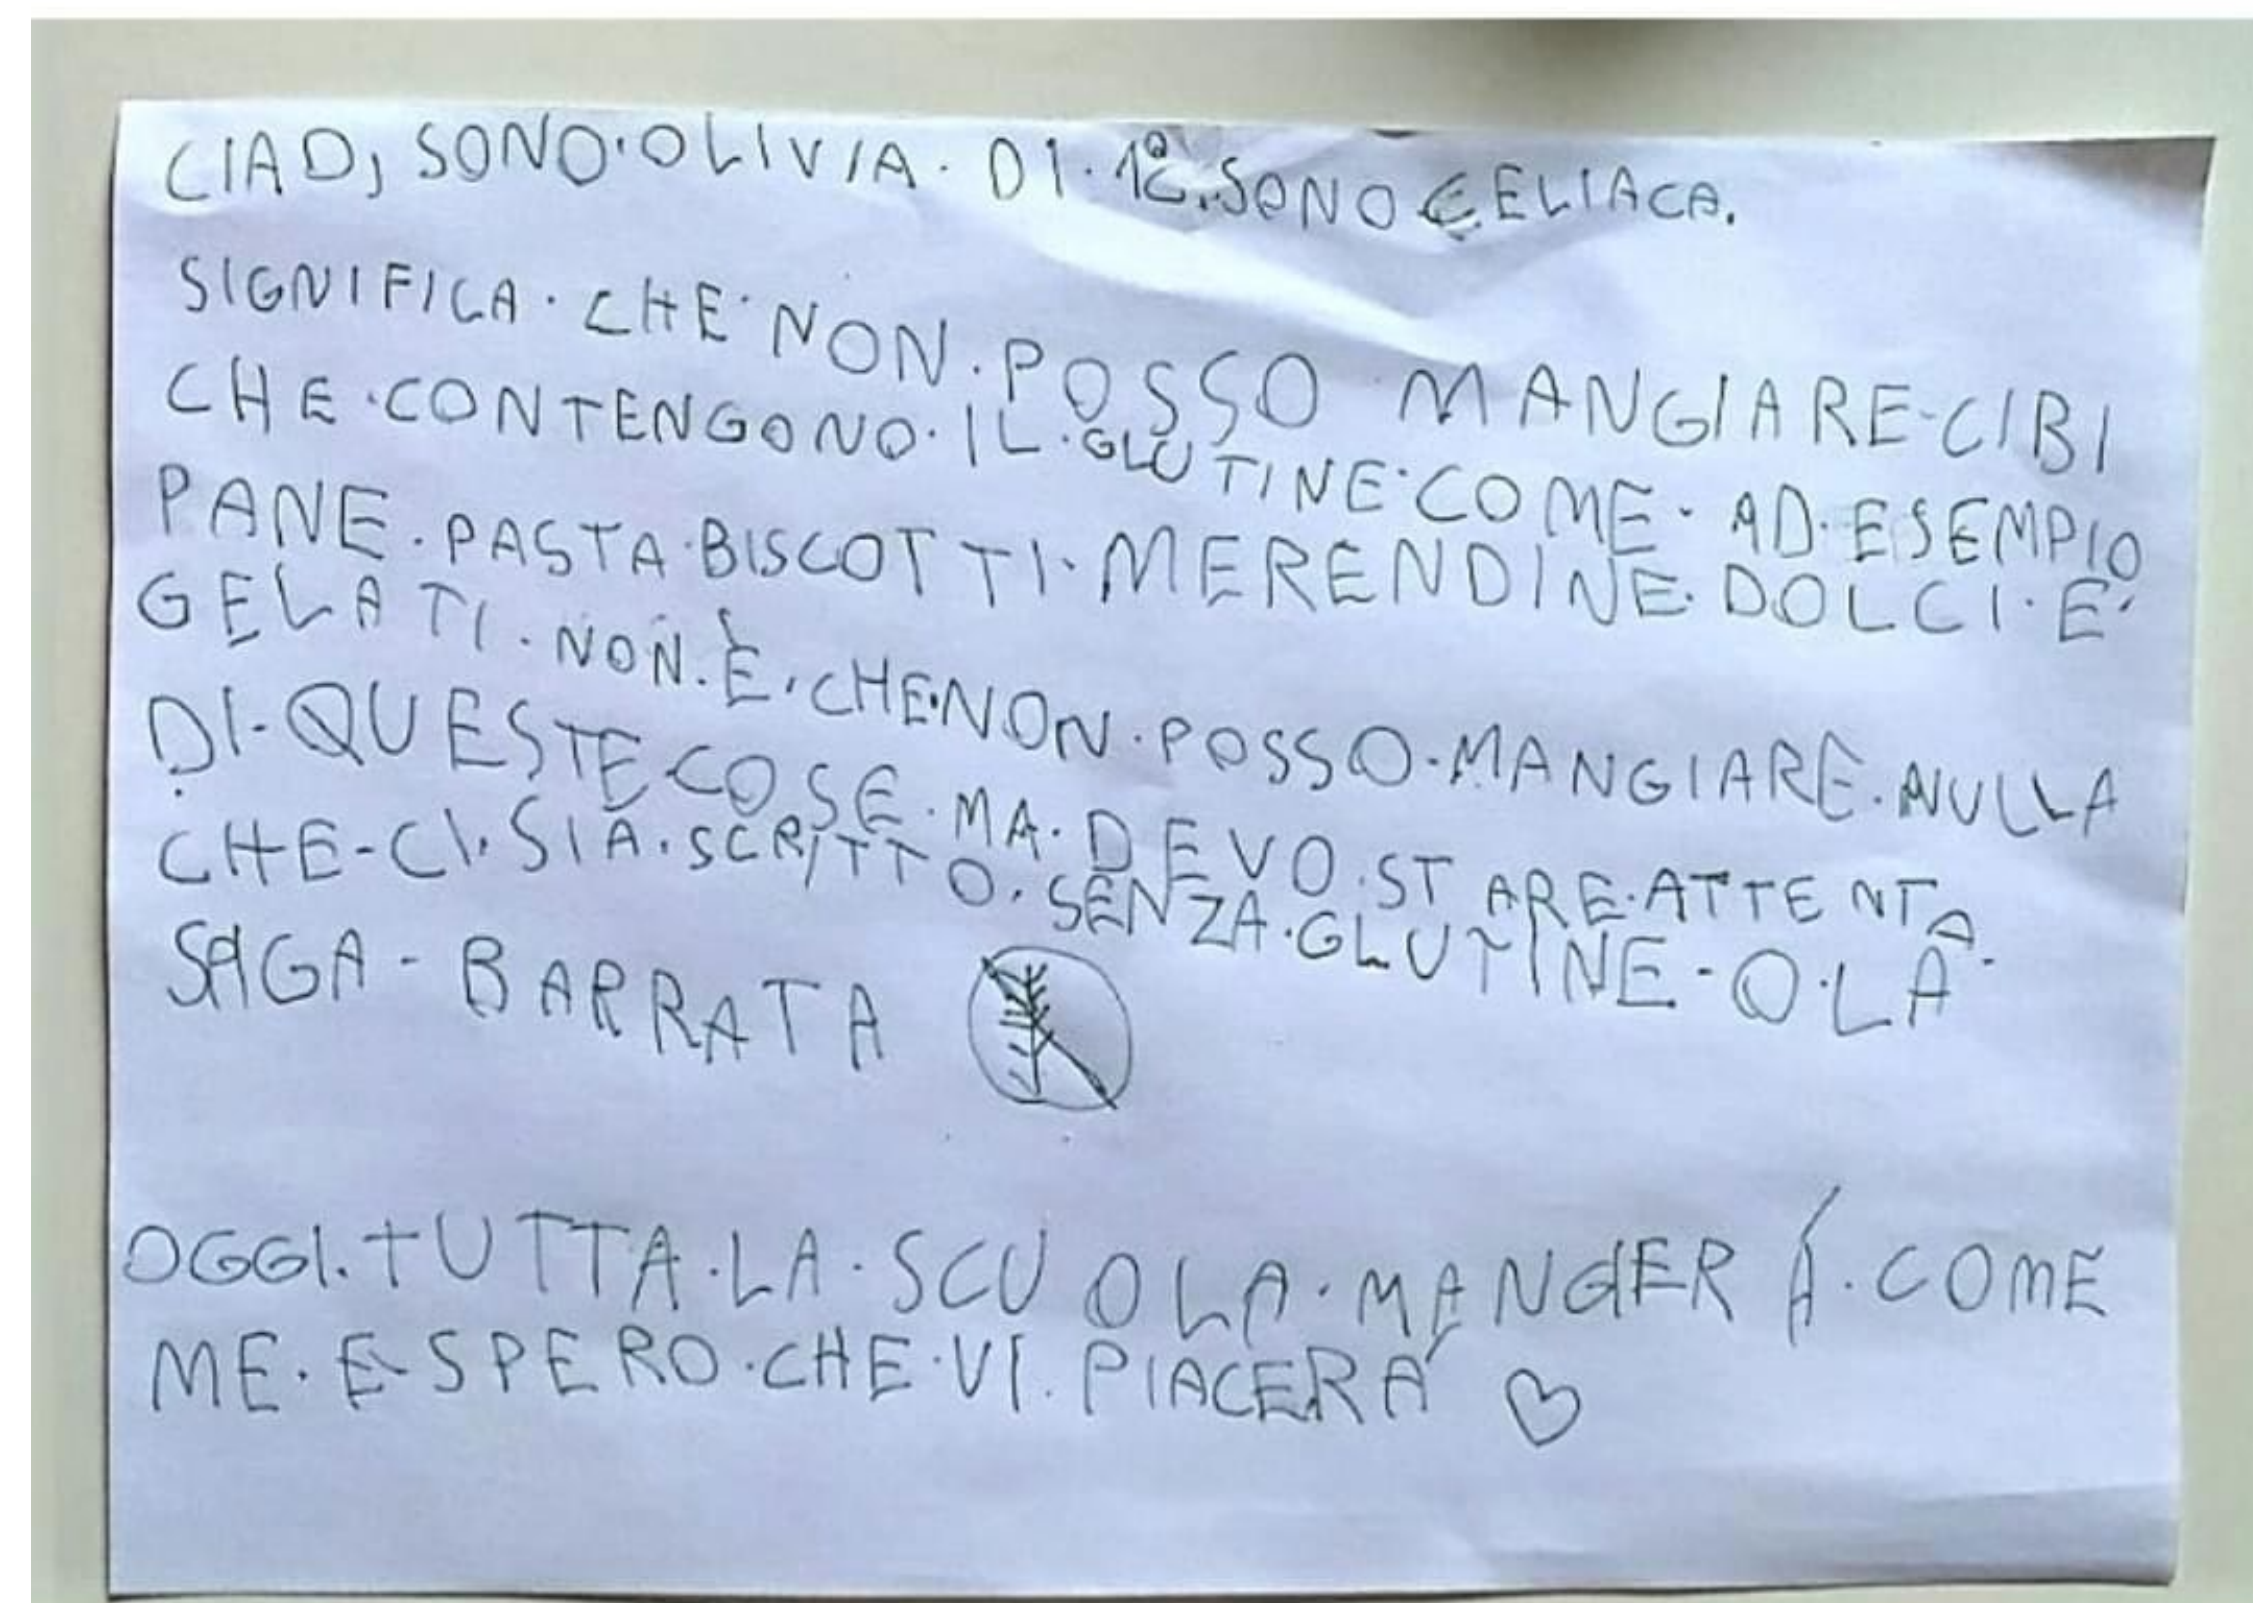 CIAO, SONO·OLIVIA· DI·1ªC.SONO CELIACA.
SIGNIFICA·CHE·NON·POSSO·MANGIARE·CIBI
CHE·CONTENGONO·IL·GLUTINE·COME·AD·ESEMPIO
PANE·PASTA·BISCOTTI·MERENDINE·DOLCI·E'
GELATI·NON·È·CHE·NON·POSSO·MANGIARE·NULLA
DI·QUESTE COSE·MA·DEVO·STARE·ATTENTA·
CHE-CI·SIA·SCRITTO·SENZA·GLUTINE-O·LA·
SAGA-BARRATA
OGGI·TUTTA·LA·SCUOLA·MANGERÁ·COME
ME·E·SPERO·CHE·VI·PIACERÁ